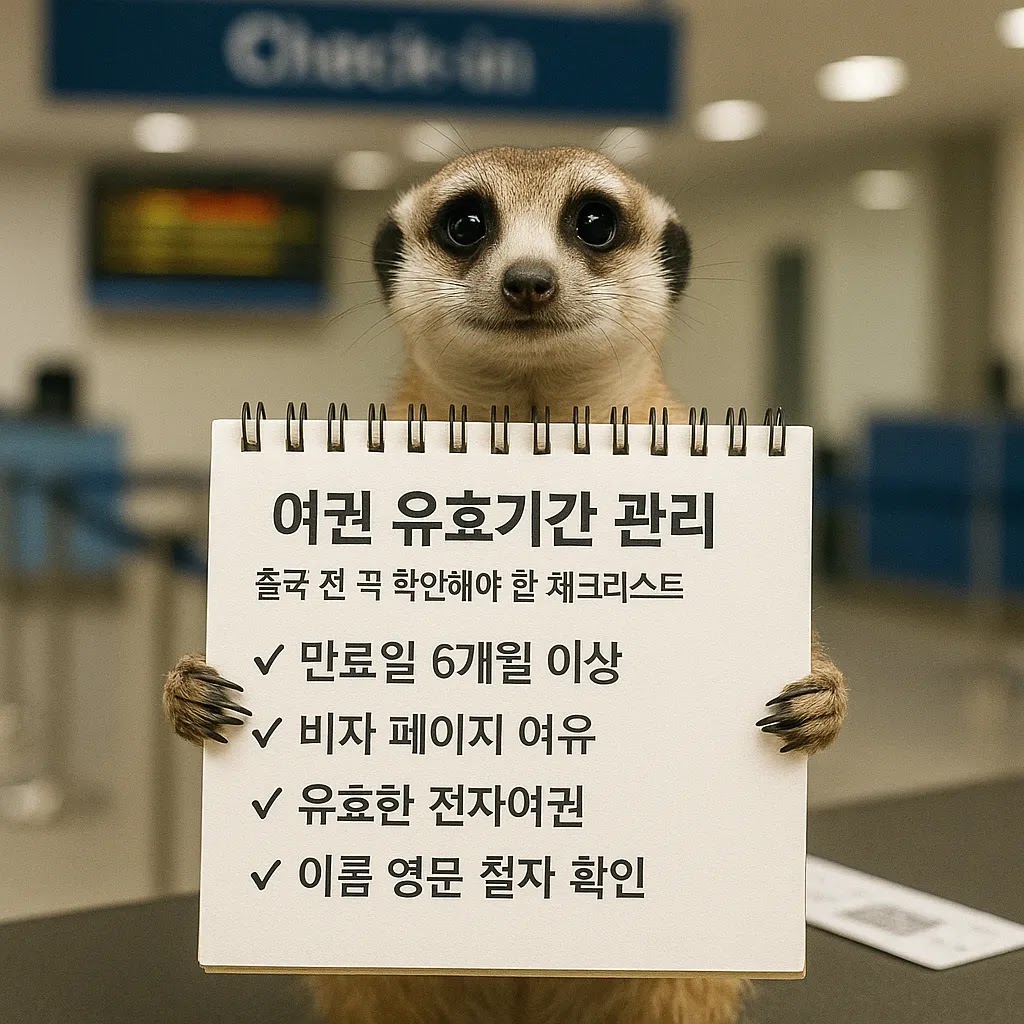 Check-in
여권 유효기간 관리
출국 전 꼭 학안해야 할 채크리스트
✓ 만료일 6개월 이상
✓ 비자 페이지 여유
✓ 유효한 전자여권
✓ 이름 영문 철자 확인